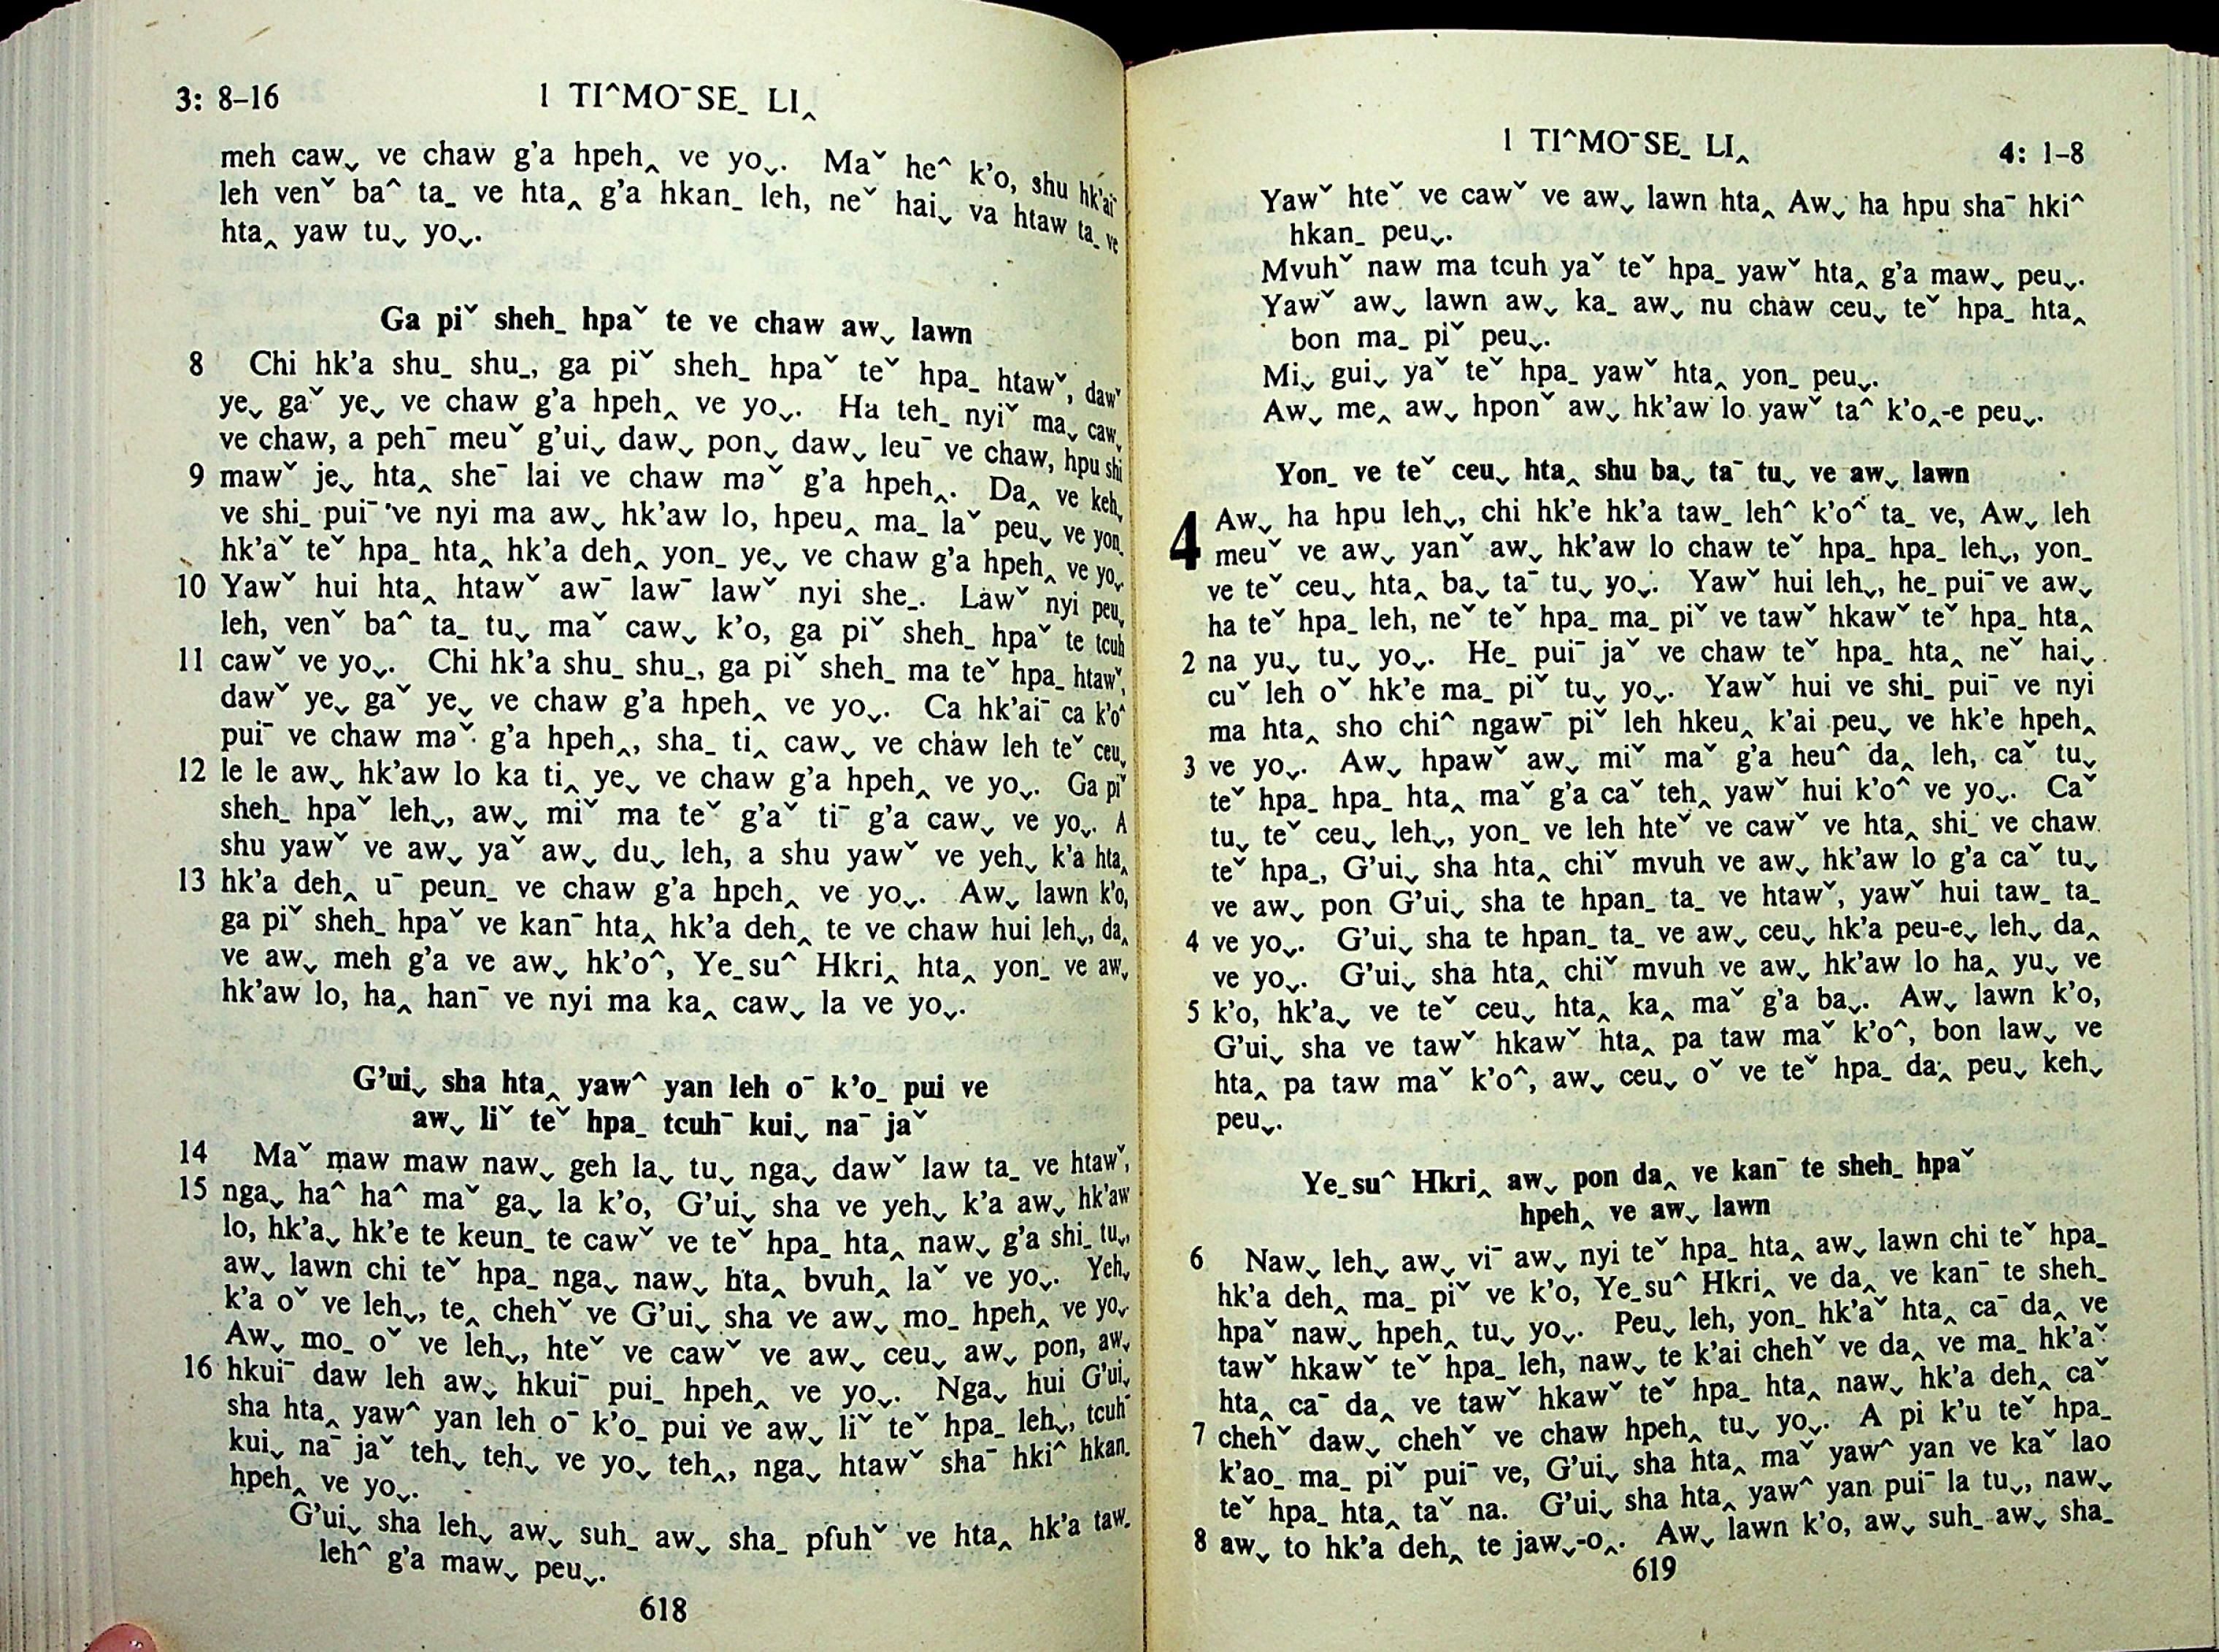 3: 8–16 1 TI^MO¯SE_ LI‸
meh caw˯ ve chaw g’a hpeh‸ ve yo˯. Maˇ he^ k’o, shu hk’ai¯
leh venˇ ba^ ta_ ve hta‸ g’a hkan_ leh, neˇ hai˯ va htaw ta_ ve
hta‸ yaw tu˯ yo˯.
Ga piˇ sheh_ hpaˇ te ve chaw aw˯ lawn
8 Chi hk’a shu_ shu_, ga piˇ sheh_ hpaˇ teˇ hpa_ htawˇ, dawˇ
ye˯ gaˇ ye˯ ve chaw g’a hpeh‸ ve yo˯. Ha teh_ nyiˇ ma˯ caw˯
ve chaw, a peh¯ meuˇ g’ui˯ daw˯ pon˯ daw˯ leu¯ ve chaw, hpu shi
9 mawˇ je˯ hta‸ she¯ lai ve chaw maˇ g’a hpeh‸. Da‸ ve keh˯
ve shi_ pui¯ ve nyi ma aw˯ hk’aw lo, hpeu‸ ma_ laˇ peu˯ ve yon_
hk’aˇ teˇ hpa_ hta‸ hk’a deh‸ yon_ ye˯ ve chaw g’a hpeh‸ ve yo˯
10 Yawˇ hui hta‸ htawˇ aw¯ law¯ lawˇ nyi she_. Lawˇ nyi peu˯
leh, venˇ ba^ ta_ tu˯ maˇ caw˯ k’o, ga piˇ sheh_ hpaˇ te tcuh
11 cawˇ ve yo˯. Chi hk’a shu_ shu_, ga piˇ sheh_ ma teˇ hpa_ htawˇ,
dawˇ ye˯ gaˇ ye˯ ve chaw g’a hpeh‸ ve yo˯. Ca hk’ai¯ ca k’o^
pui¯ ve chaw maˇ g’a hpeh‸, sha_ ti‸ caw˯ ve chaw leh teˇ ceu˯
12 le le aw˯ hk’aw lo ka ti‸ ye˯ ve chaw g’a hpeh‸ ve yo˯. Ga piˇ
sheh_ hpaˇ leh˯, aw˯ miˇ ma teˇ g’aˇ ti¯ g’a caw˯ ve yo˯. A
shu yawˇ ve aw˯ yaˇ aw˯ du˯ leh, a shu yawˇ ve yeh˯ k’a hta‸
13 hk’a deh‸ u¯ peun_ ve chaw g’a hpeh‸ ve yo˯. Aw˯ lawn k’o,
ga piˇ sheh_ hpaˇ ve kan¯ hta‸ hk’a deh‸ te ve chaw hui leh˯, da‸
ve aw˯ meh g’a ve aw˯ hk’o^, Ye_su^ Hkri‸ hta‸ yon_ ve aw˯
hk’aw lo, ha‸ han¯ ve nyi ma ka‸ caw˯ la ve yo˯.
G’ui˯ sha hta‸ yaw^ yan leh o¯ k’o_ pui ve
aw˯ liˇ teˇ hpa_ tcuh¯ kui˯ na¯ jaˇ
14 Maˇ maw maw naw˯ geh la˯ tu˯ nga˯ dawˇ law ta_ ve htawˇ,
15 nga˯ ha^ ha^ maˇ ga˯ la k’o, G’ui˯ sha ve yeh˯ k’a aw˯ hk’aw
lo, hk’a˯ hk’e te keun_ te cawˇ ve teˇ hpa_ hta‸ naw˯ g’a shi_ tu˯,
aw˯ lawn chi teˇ hpa_ nga˯ naw˯ hta‸ bvuh‸ laˇ ve yo˯. Yeh˯
k’a oˇ ve leh˯, te‸ chehˇ ve G’ui˯ sha ve aw˯ mo_ hpeh‸ ve yo˯
Aw˯ mo_ oˇ ve leh˯, hteˇ ve cawˇ ve aw˯ ceu˯ aw˯ pon, aw˯
16 hkui¯ daw leh aw˯ hkui¯ pui_ hpeh‸ ve yo˯. Nga˯ hui G’ui˯
sha hta‸ yaw^ yan leh o¯ k’o_ pui ve aw˯ liˇ teˇ hpa_ leh˯, tcuh¯
kui˯ na¯ jaˇ teh˯ teh˯ ve yo˯ teh‸, nga˯ htawˇ sha¯ hki^ hkan_
hpeh‸ ve yo˯.
G’ui˯ sha leh˯ aw˯ suh_ aw˯ sha_ pfuhˇ ve hta‸ hk’a taw_
leh^ g’a maw˯ peu˯.
618
1 TI^MO¯SE_ LI‸ 4: 1–8
Yawˇ hteˇ ve cawˇ ve aw˯ lawn hta‸ Aw˯ ha hpu sha¯ hki^
hkan_ peu˯.
Mvuhˇ naw ma tcuh yaˇ teˇ hpa_ yawˇ hta‸ g’a maw˯ peu˯.
Yawˇ aw˯ lawn aw˯ ka_ aw˯ nu chaw ceu˯ teˇ hpa_ hta‸
bon ma_ piˇ peu˯.
Mi˯ gui˯ yaˇ teˇ hpa_ yawˇ hta‸ yon_ peu˯.
Aw˯ me‸ aw˯ hponˇ aw˯ hk’aw lo yawˇ ta^ k’o‸-e peu˯.
Yon_ ve teˇ ceu˯ hta‸ shu ba˯ ta¯ tu˯ ve aw˯ lawn
4 Aw˯ ha hpu leh˯, chi hk’e hk’a taw_ leh^ k’o^ ta_ ve, Aw˯ leh
meuˇ ve aw˯ yanˇ aw˯ hk’aw lo chaw teˇ hpa_ hpa_ leh˯, yon_
ve teˇ ceu˯ hta‸ ba˯ ta¯ tu˯ yo˯. Yawˇ hui leh˯, he_ pui¯ ve aw˯
ha teˇ hpa_ leh, neˇ teˇ hpa_ ma_ piˇ ve tawˇ hkawˇ teˇ hpa_ hta‸
2 na yu˯ tu˯ yo˯. He_ pui¯ jaˇ ve chaw teˇ hpa_ hta‸ neˇ hai˯
cuˇ leh oˇ hk’e ma_ piˇ tu˯ yo˯. Yawˇ hui ve shi_ pui¯ ve nyi
ma hta‸ sho chi^ ngaw¯ piˇ leh hkeu˯ k’ai peu˯ ve hk’e hpeh‸
3 ve yo˯. Aw˯ hpawˇ aw˯ miˇ maˇ g’a heu^ da‸ leh, caˇ tu˯
teˇ hpa_ hpa_ hta‸ maˇ g’a caˇ teh‸ yawˇ hui k’o^ ve yo˯. Caˇ
tu˯ teˇ ceu˯ leh˯, yon_ ve leh hteˇ ve cawˇ ve hta‸ shi_ ve chaw
teˇ hpa_, G’ui˯ sha hta‸ chiˇ mvuh ve aw˯ hk’aw lo g’a caˇ tu˯
ve aw˯ pon G’ui˯ sha te hpan_ ta_ ve htawˇ, yawˇ hui taw_ ta_
4 ve yo˯. G’ui˯ sha te hpan_ ta_ ve aw˯ ceu˯ hk’a peu-e˯ leh˯ da‸
ve yo˯. G’ui˯ sha hta‸ chiˇ mvuh ve aw˯ hk’aw lo ha‸ yu˯ ve
5 k’o, hk’a˯ ve teˇ ceu˯ hta‸ ka‸ maˇ g’a ba˯. Aw˯ lawn k’o,
G’ui˯ sha ve tawˇ hkawˇ hta‸ pa taw maˇ k’o^, bon law˯ ve
hta‸ pa taw maˇ k’o^, aw˯ ceu˯ oˇ ve teˇ hpa_ da‸ peu˯ keh˯
peu˯.
Ye_su^ Hkri‸ aw˯ pon da‸ ve kan¯ te sheh_ hpaˇ
hpeh‸ ve aw˯ lawn
6 Naw˯ leh˯ aw˯ vi¯ aw˯ nyi teˇ hpa_ hta‸ aw˯ lawn chi teˇ hpa_
hk’a deh‸ ma_ piˇ ve k’o, Ye_su^ Hkri‸ ve da‸ ve kan¯ te sheh_
hpaˇ naw˯ hpeh‸ tu˯ yo˯. Peu˯ leh, yon_ hk’aˇ hta‸ ca¯ da‸ ve
tawˇ hkawˇ teˇ hpa_ leh, naw˯ te k’ai chehˇ ve da‸ ve ma_ hk’aˇ
hta‸ ca¯ da‸ ve tawˇ hkawˇ teˇ hpa_ hta‸ naw˯ hk’a deh‸ caˇ
7 chehˇ daw˯ chehˇ ve chaw hpeh‸ tu˯ yo˯. A pi k’u teˇ hpa_
k’ao_ ma_ piˇ pui¯ ve, G’ui˯ sha hta‸ maˇ yaw^ yan ve kaˇ lao
teˇ hpa_ hta‸ taˇ na. G’ui˯ sha hta‸ yaw^ yan pui¯ la tu˯, naw˯
8 aw˯ to hk’a deh‸ te jaw˯-o‸. Aw˯ lawn k’o, aw˯ suh_ aw˯ sha_
619